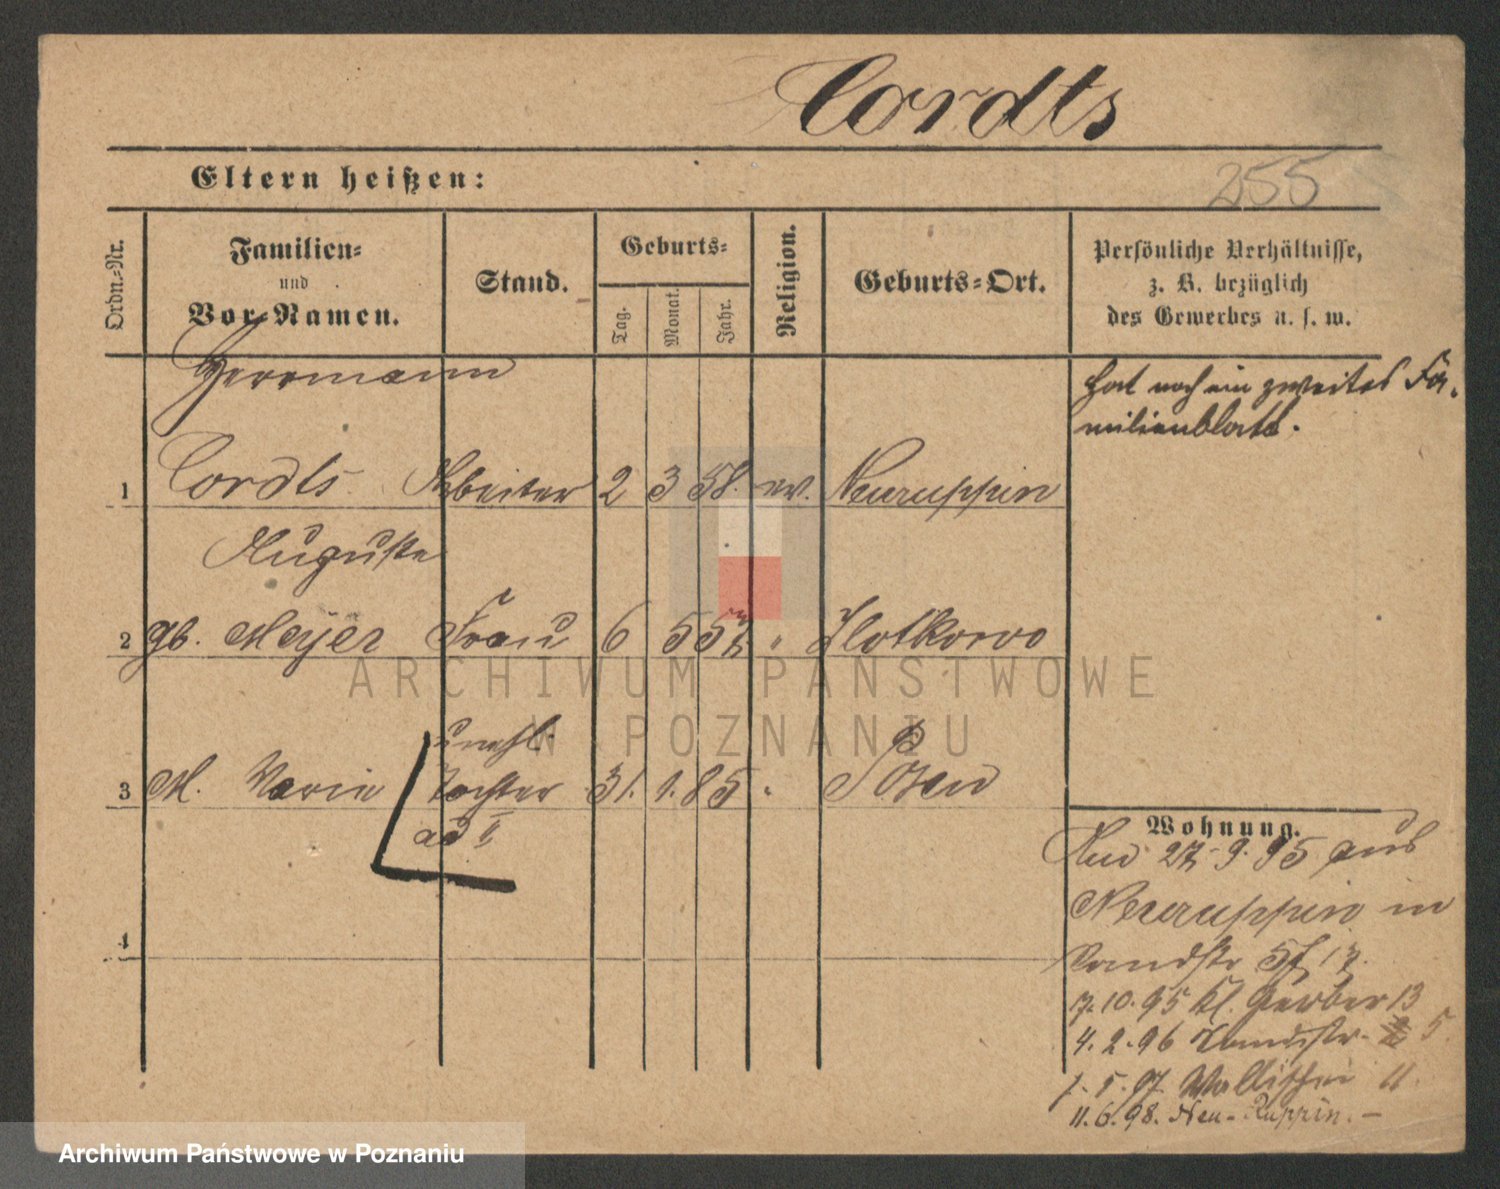 Cordts
Eltern heißen:
255
Ordn.-Nr.
Familien-
und
Vor-Namen.
Stand.
Geburts-
Tag.
Monat.
Jahr.
Religion.
Geburts-Ort.
Persönliche Verhältnisse,
z. B. bezüglich
des Gewerbes u. s. w.
Herrmann
hat noch ein zweites Fa-
milienblatt.
1 Cordts Arbeiter 2 3 58. ev. Neuruppin
Auguste
2 gb. Meyer Frau 6 5 Zlotkowo
unehl.
3 M. Marie Tochter 31. 1. 85 Posen
ad II
4
Wohnung.
27.9.95 aus
Neuruppin in
7.10.95 Kl. Gerber 13
4.2.96 5.
1.5.97. Wallischei 11.
11.6.98. Neu-Ruppin. –
ARCHIWUM PAŃSTWOWE
W POZNANIU
Archiwum Państwowe w Poznaniu